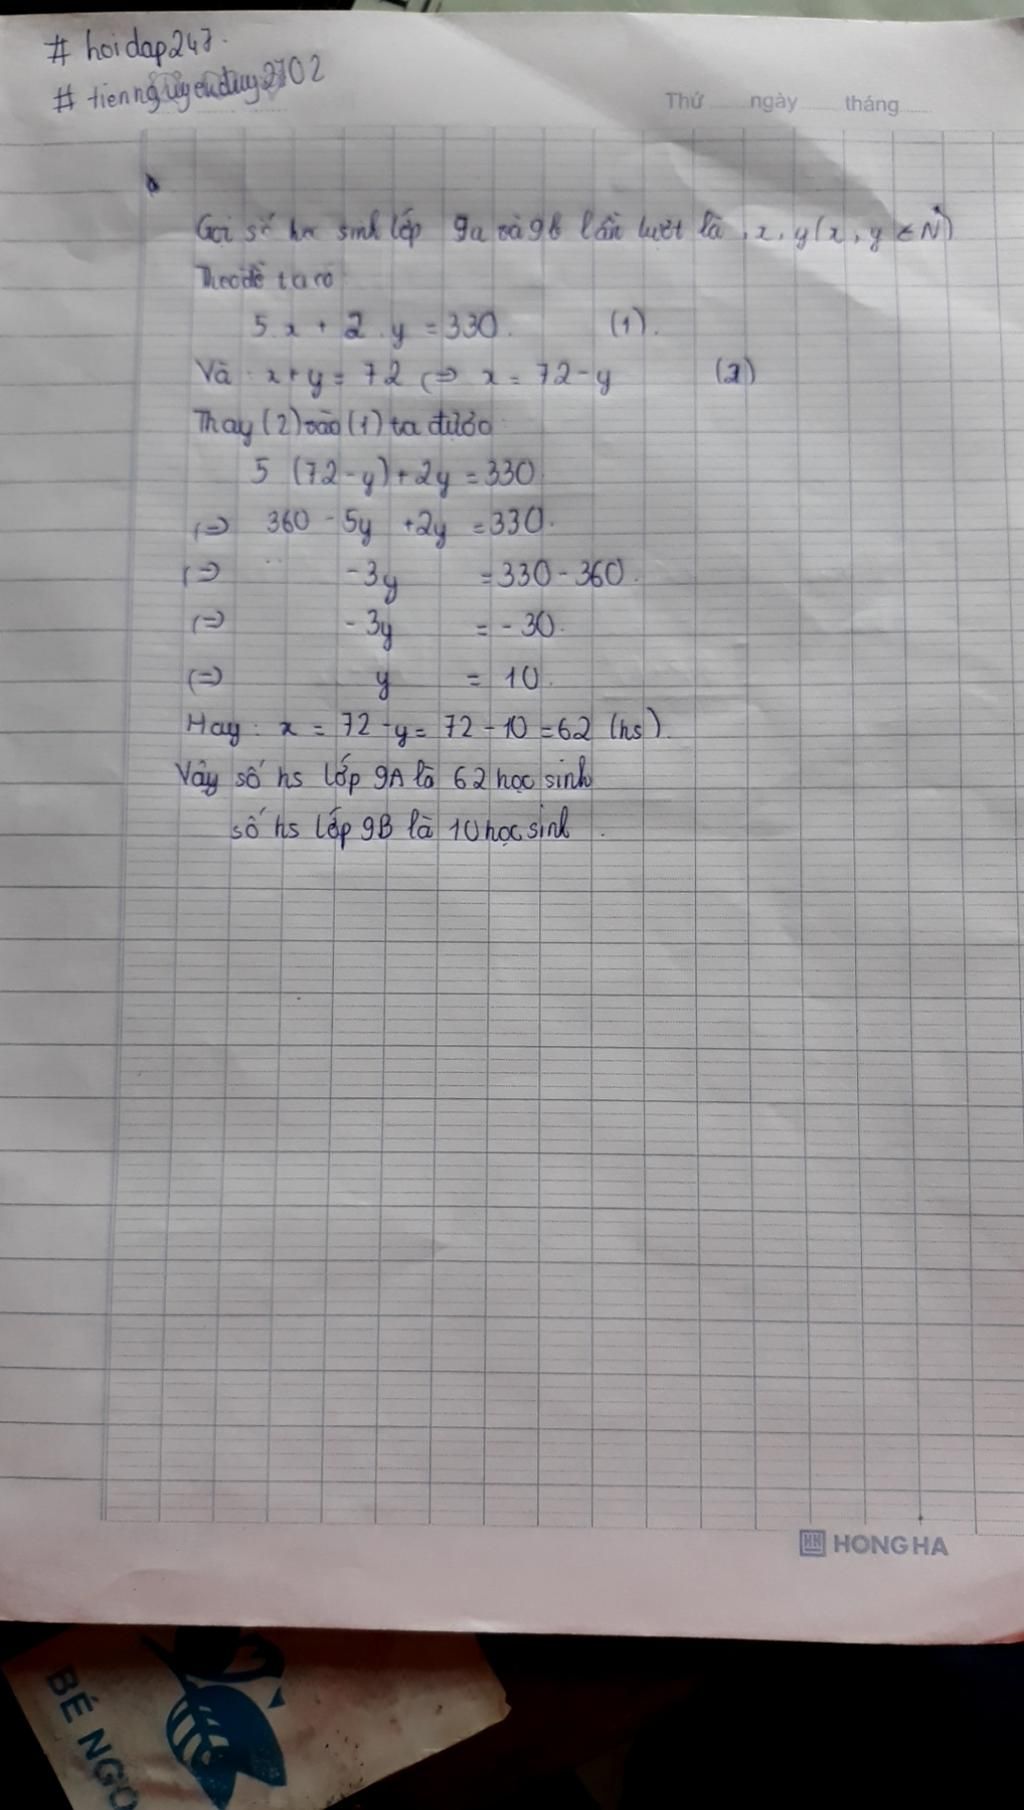 # hoidap247.
# tiennguyenduy2702
Thứ ngày tháng
Gọi số hs sinh lớp 9a và 9b lần lượt là x, y (x, y ∈ N*)
Theo đề ta có
5.x + 2.y = 330. (1).
Và x+y = 72 (=> x = 72-y (2)
Thay (2) vào (1) ta được
5 (72-y)+2y = 330.
(=> 360 - 5y +2y = 330.
(=> -3y = 330-360.
(=> -3y = -30.
(=> y = 10.
Hay: x = 72-y = 72-10 = 62 (hs).
Vậy số hs lớp 9A là 62 học sinh
số hs lớp 9B là 10 học sinh.
HONG HA
BÉ NGO